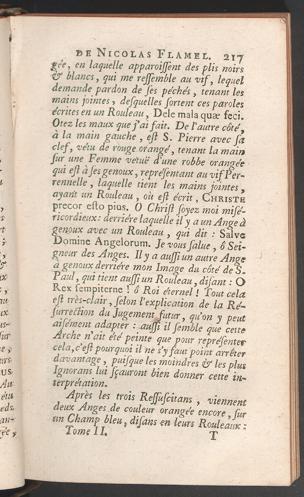 DE NICOLAS FLAMEL. 217
gée, en laquelle apparoissent des plis noirs
& blancs, qui me ressemble au vif, lequel
demande pardon de ses péchés, tenant les
mains jointes, desquelles sortent ces paroles
écrites en un Rouleau, Dele mala quæ feci.
Otez les maux que j'ai fait. De l'autre côté,
à la main gauche, est S. Pierre avec sa
clef, vétu de rouge orangé, tenant la main
sur une Femme vetuë d'une robbe orangée
qui est à ses genoux, représentant au vif Per-
rennelle, laquelle tient les mains jointes,
ayant un Rouleau, où est écrit, CHRISTE
precor esto pius. O Christ soyez moi misé-
ricordieux: derriére laquelle il y a un Ange à
genoux avec un Rouleau, qui dit : Salve
Domine Angelorum. Je vous salue, ô Sei-
gneur des Anges. Il y a aussi un autre Ange
à genoux derriére mon Image du côté de S.
Paul, qui tient aussi un Rouleau, disant : O
Rex sempiterne ! ô Roi éternel ! Tout cela
est très-clair, selon l'explication de la Ré-
surrection du Jugement futur, qu'on y peut
aisément adapter : aussi il semble que cette
Arche n'ait été peinte que pour représenter
cela, c'est pourquoi il ne s'y faut point arrêter
davantage, puisque les moindres & les plus
Ignorans lui sçauront bien donner cette in-
terprétation.
Après les trois Ressuscitans, viennent
deux Anges de couleur orangée encore, sur
un Champ bleu, disans en leurs Rouleaux :
Tome II. T